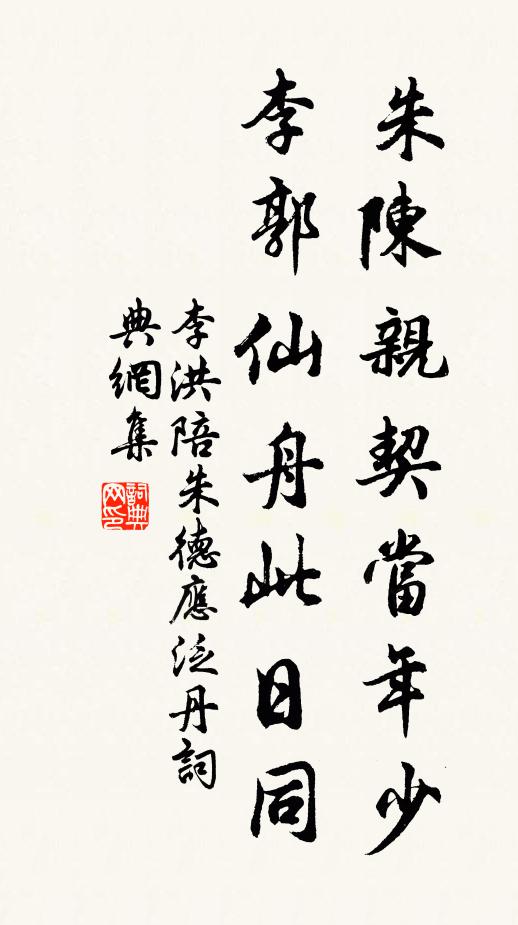 朱陳親契當年少
李郭仙舟此日同
李洪陪朱德應泛舟詞
典網集
詞典
网印